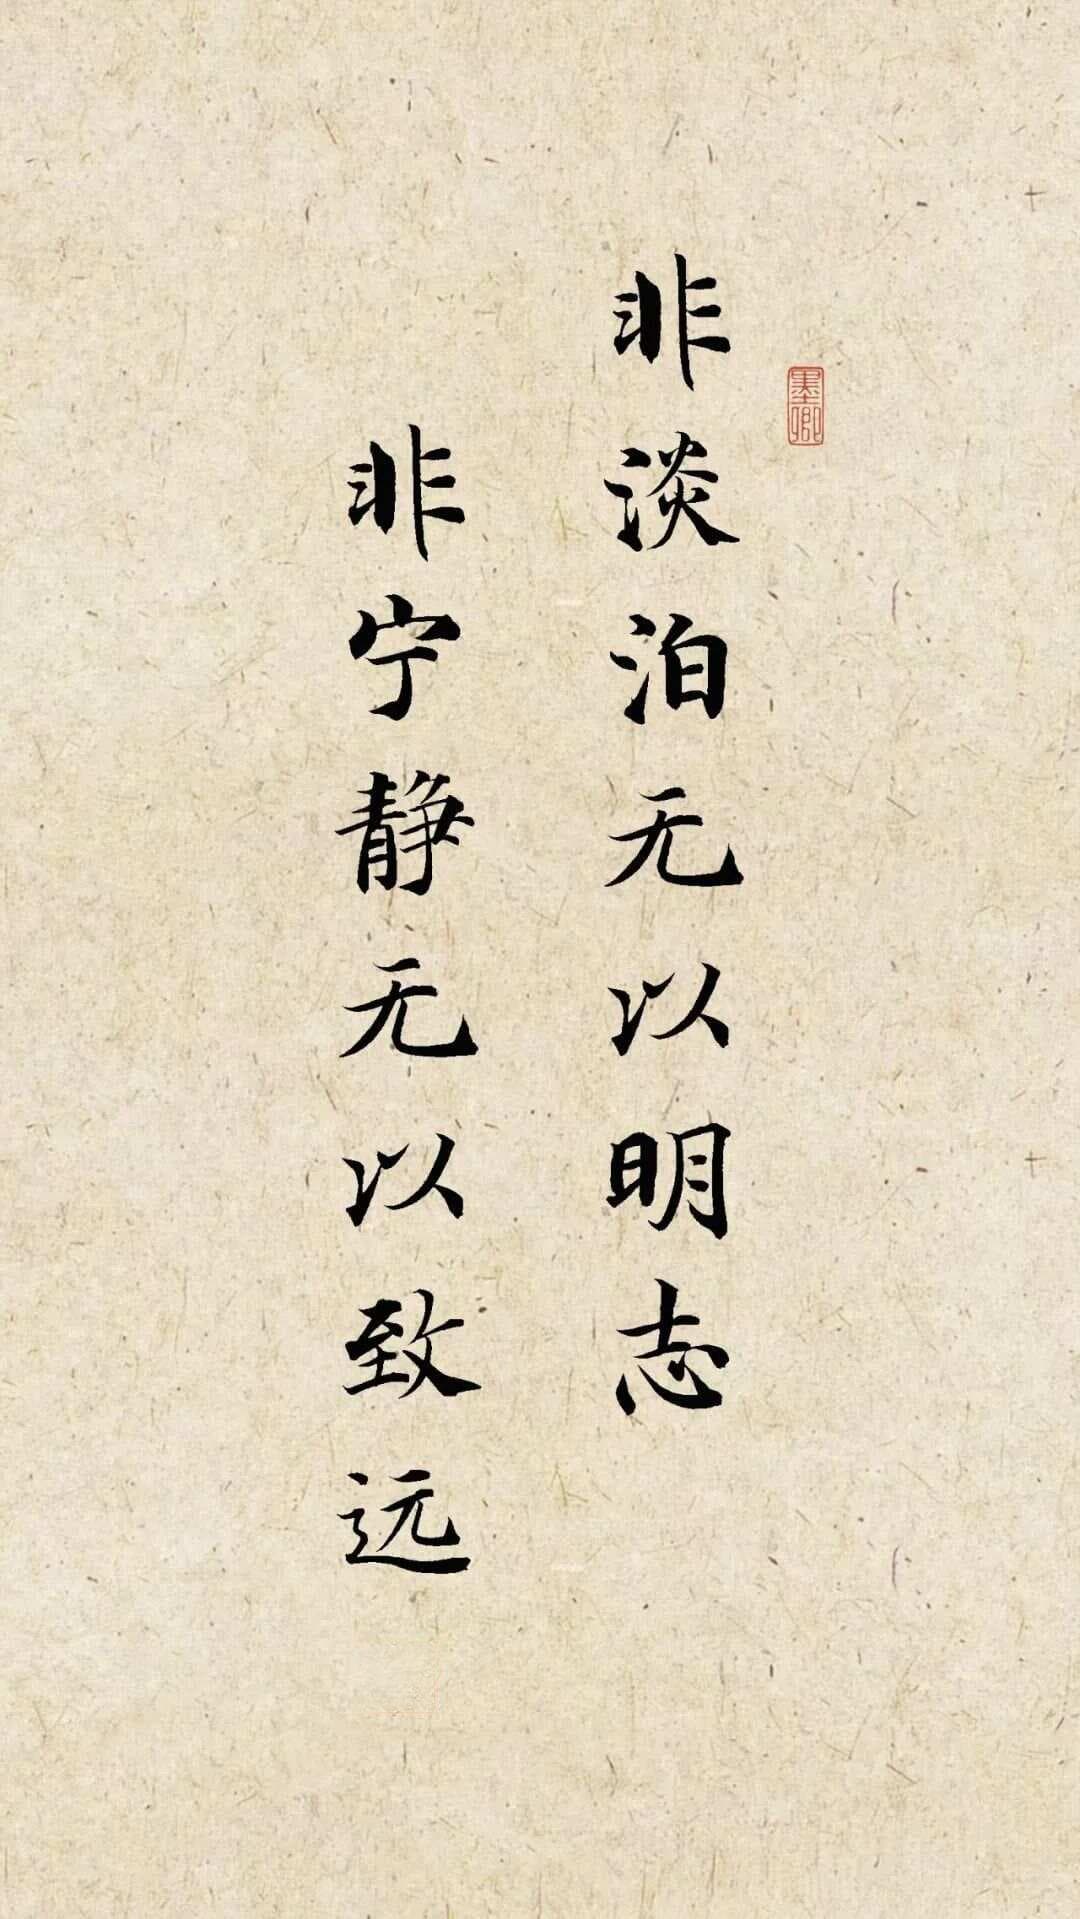 非淡泊无以明志
非宁静无以致远
墨卿